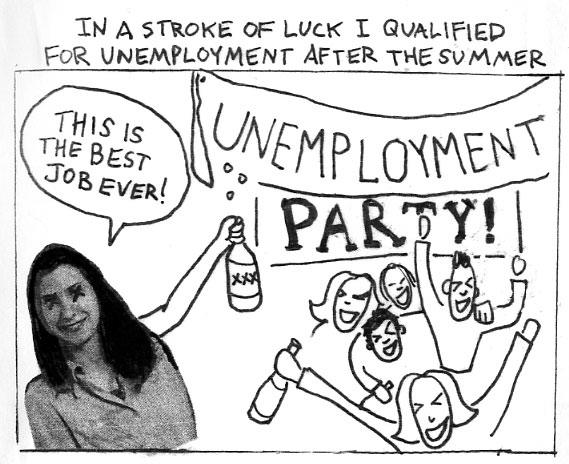 IN A STROKE OF LUCK I QUALIFIED
FOR UNEMPLOYMENT AFTER THE SUMMER
THIS IS
THE BEST
JOB EVER!
UNEMPLOYMENT
PARTY!
XXX